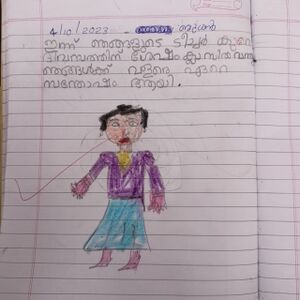 4/10/2023 ബുധൻ
ഇന്ന് ഞങ്ങളുടെ ടീച്ചർ കുറേ
ദിവസത്തിന് ശേഷം ക്ലാസിൽ വന്നു
ഞങ്ങൾക്ക് വളരെ ഏറെ
സന്തോഷം ആയി.